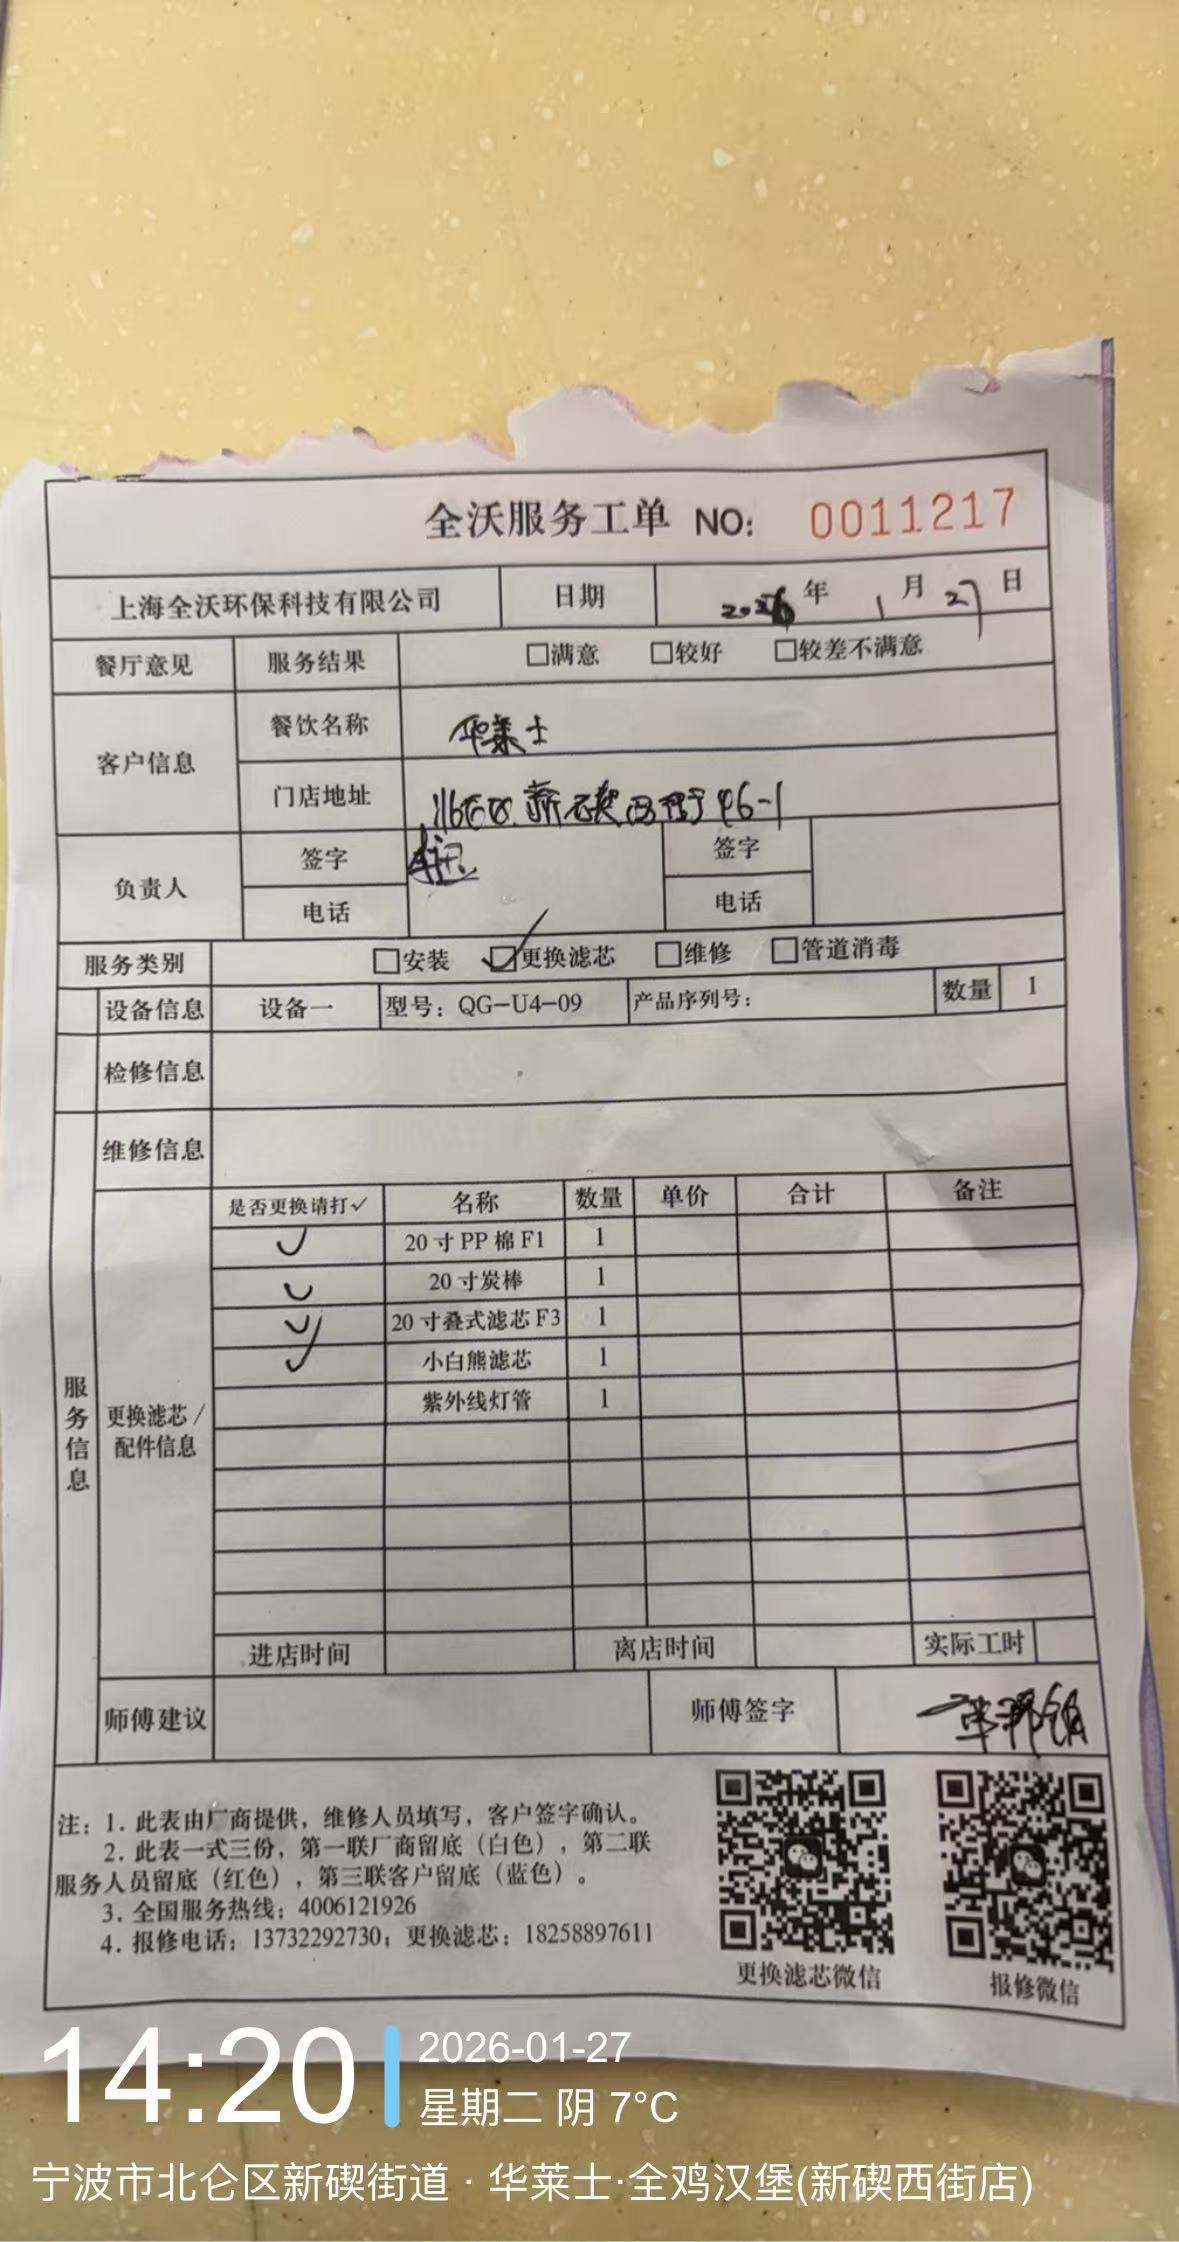 全沃服务工单 NO: 0011217
上海全沃环保科技有限公司 日期 2026年1月27日
餐厅意见 服务结果 □满意 □较好 □较差不满意
客户信息 餐饮名称 华莱士
门店地址 北仑区新碶西街46-1
负责人 签字 签字
电话 电话
服务类别 □安装 ☑更换滤芯 □维修 □管道消毒
设备信息 设备一 型号：QG-U4-09 产品序列号： 数量 1
检修信息
维修信息
服务信息
更换滤芯/
配件信息
是否更换请打✓ 名称 数量 单价 合计 备注
✓ 20寸PP棉F1 1
✓ 20寸炭棒 1
✓ 20寸叠式滤芯F3 1
✓ 小白熊滤芯 1
紫外线灯管 1
进店时间 离店时间 实际工时
师傅建议 师傅签字
注：1. 此表由厂商提供，维修人员填写，客户签字确认。
2. 此表一式三份，第一联厂商留底（白色），第二联
服务人员留底（红色），第三联客户留底（蓝色）。
3. 全国服务热线：4006121926
4. 报修电话：13732292730；更换滤芯：18258897611
更换滤芯微信 报修微信
14:20
2026-01-27
星期二 阴 7°C
宁波市北仑区新碶街道 · 华莱士·全鸡汉堡(新碶西街店)